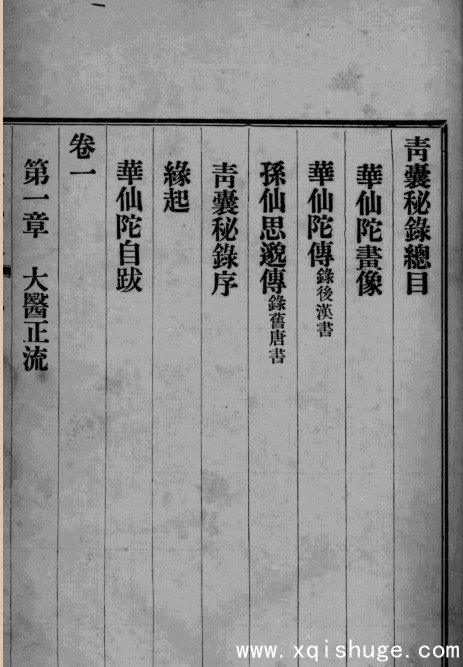 青囊秘錄總目
華仙陀畫像
華仙陀傳錄後漢書
孫仙思邈傳錄舊唐書
青囊秘錄序
緣起
華仙陀自跋
卷一
第一章 大醫正流
www.xqishuge.com